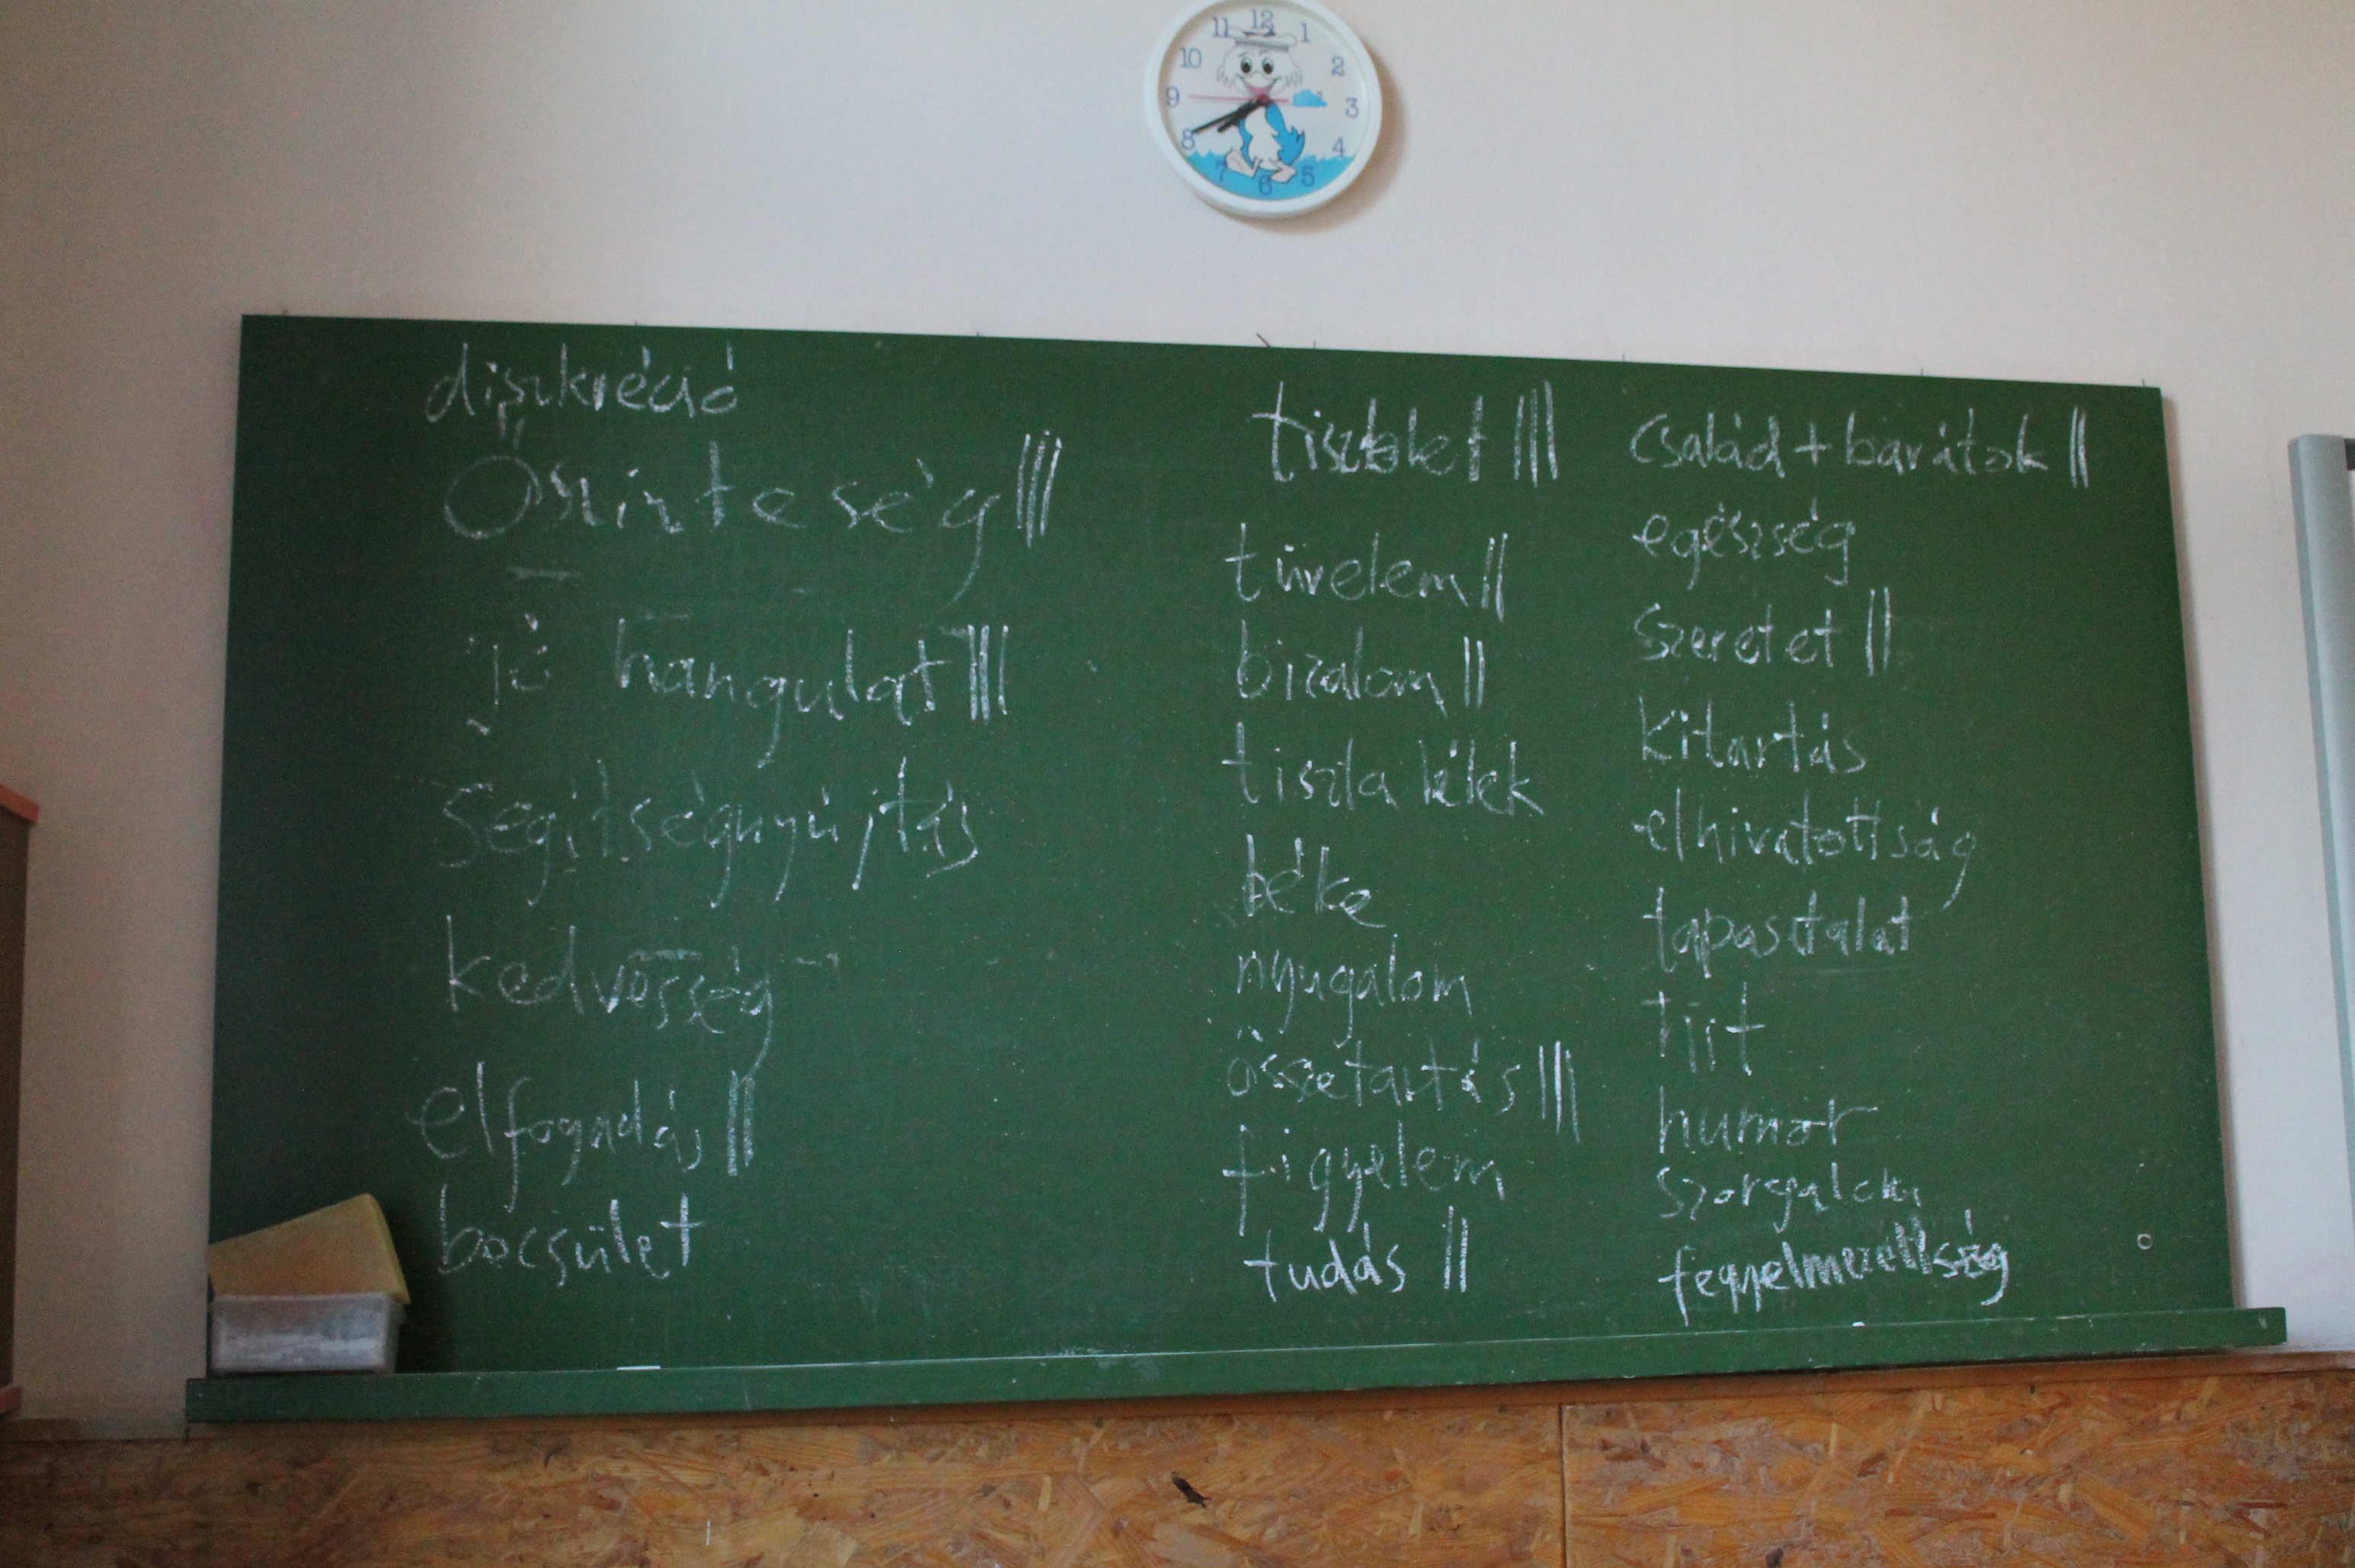 12
1
2
3
4
5
6
7
8
9
10
11
diszkréció
Őszinteség |||
jó hangulat |||
Segítségnyújtás
kedvesség
elfogadás ||
becsület
tisztelet |||
türelem ||
bizalom ||
tiszta lélek
béke
nyugalom
összetartás |||
figyelem
tudás ||
család + barátok ||
egészség
szeretet ||
kitartás
elhivatottság
tapasztalat
hit
humor
szorgalom
fegyelmezettség